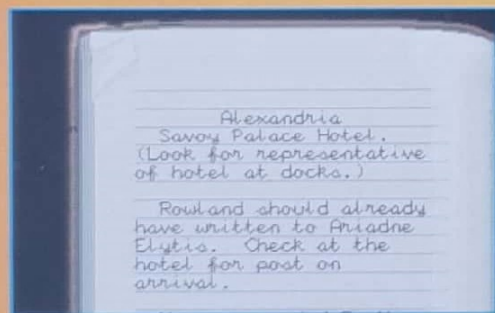 Alexandria
Savoy Palace Hotel.
(Look for representative
of hotel at docks.)
Rowland should already
have written to Ariadne
Elytis. Check at the
hotel for post on
arrival.